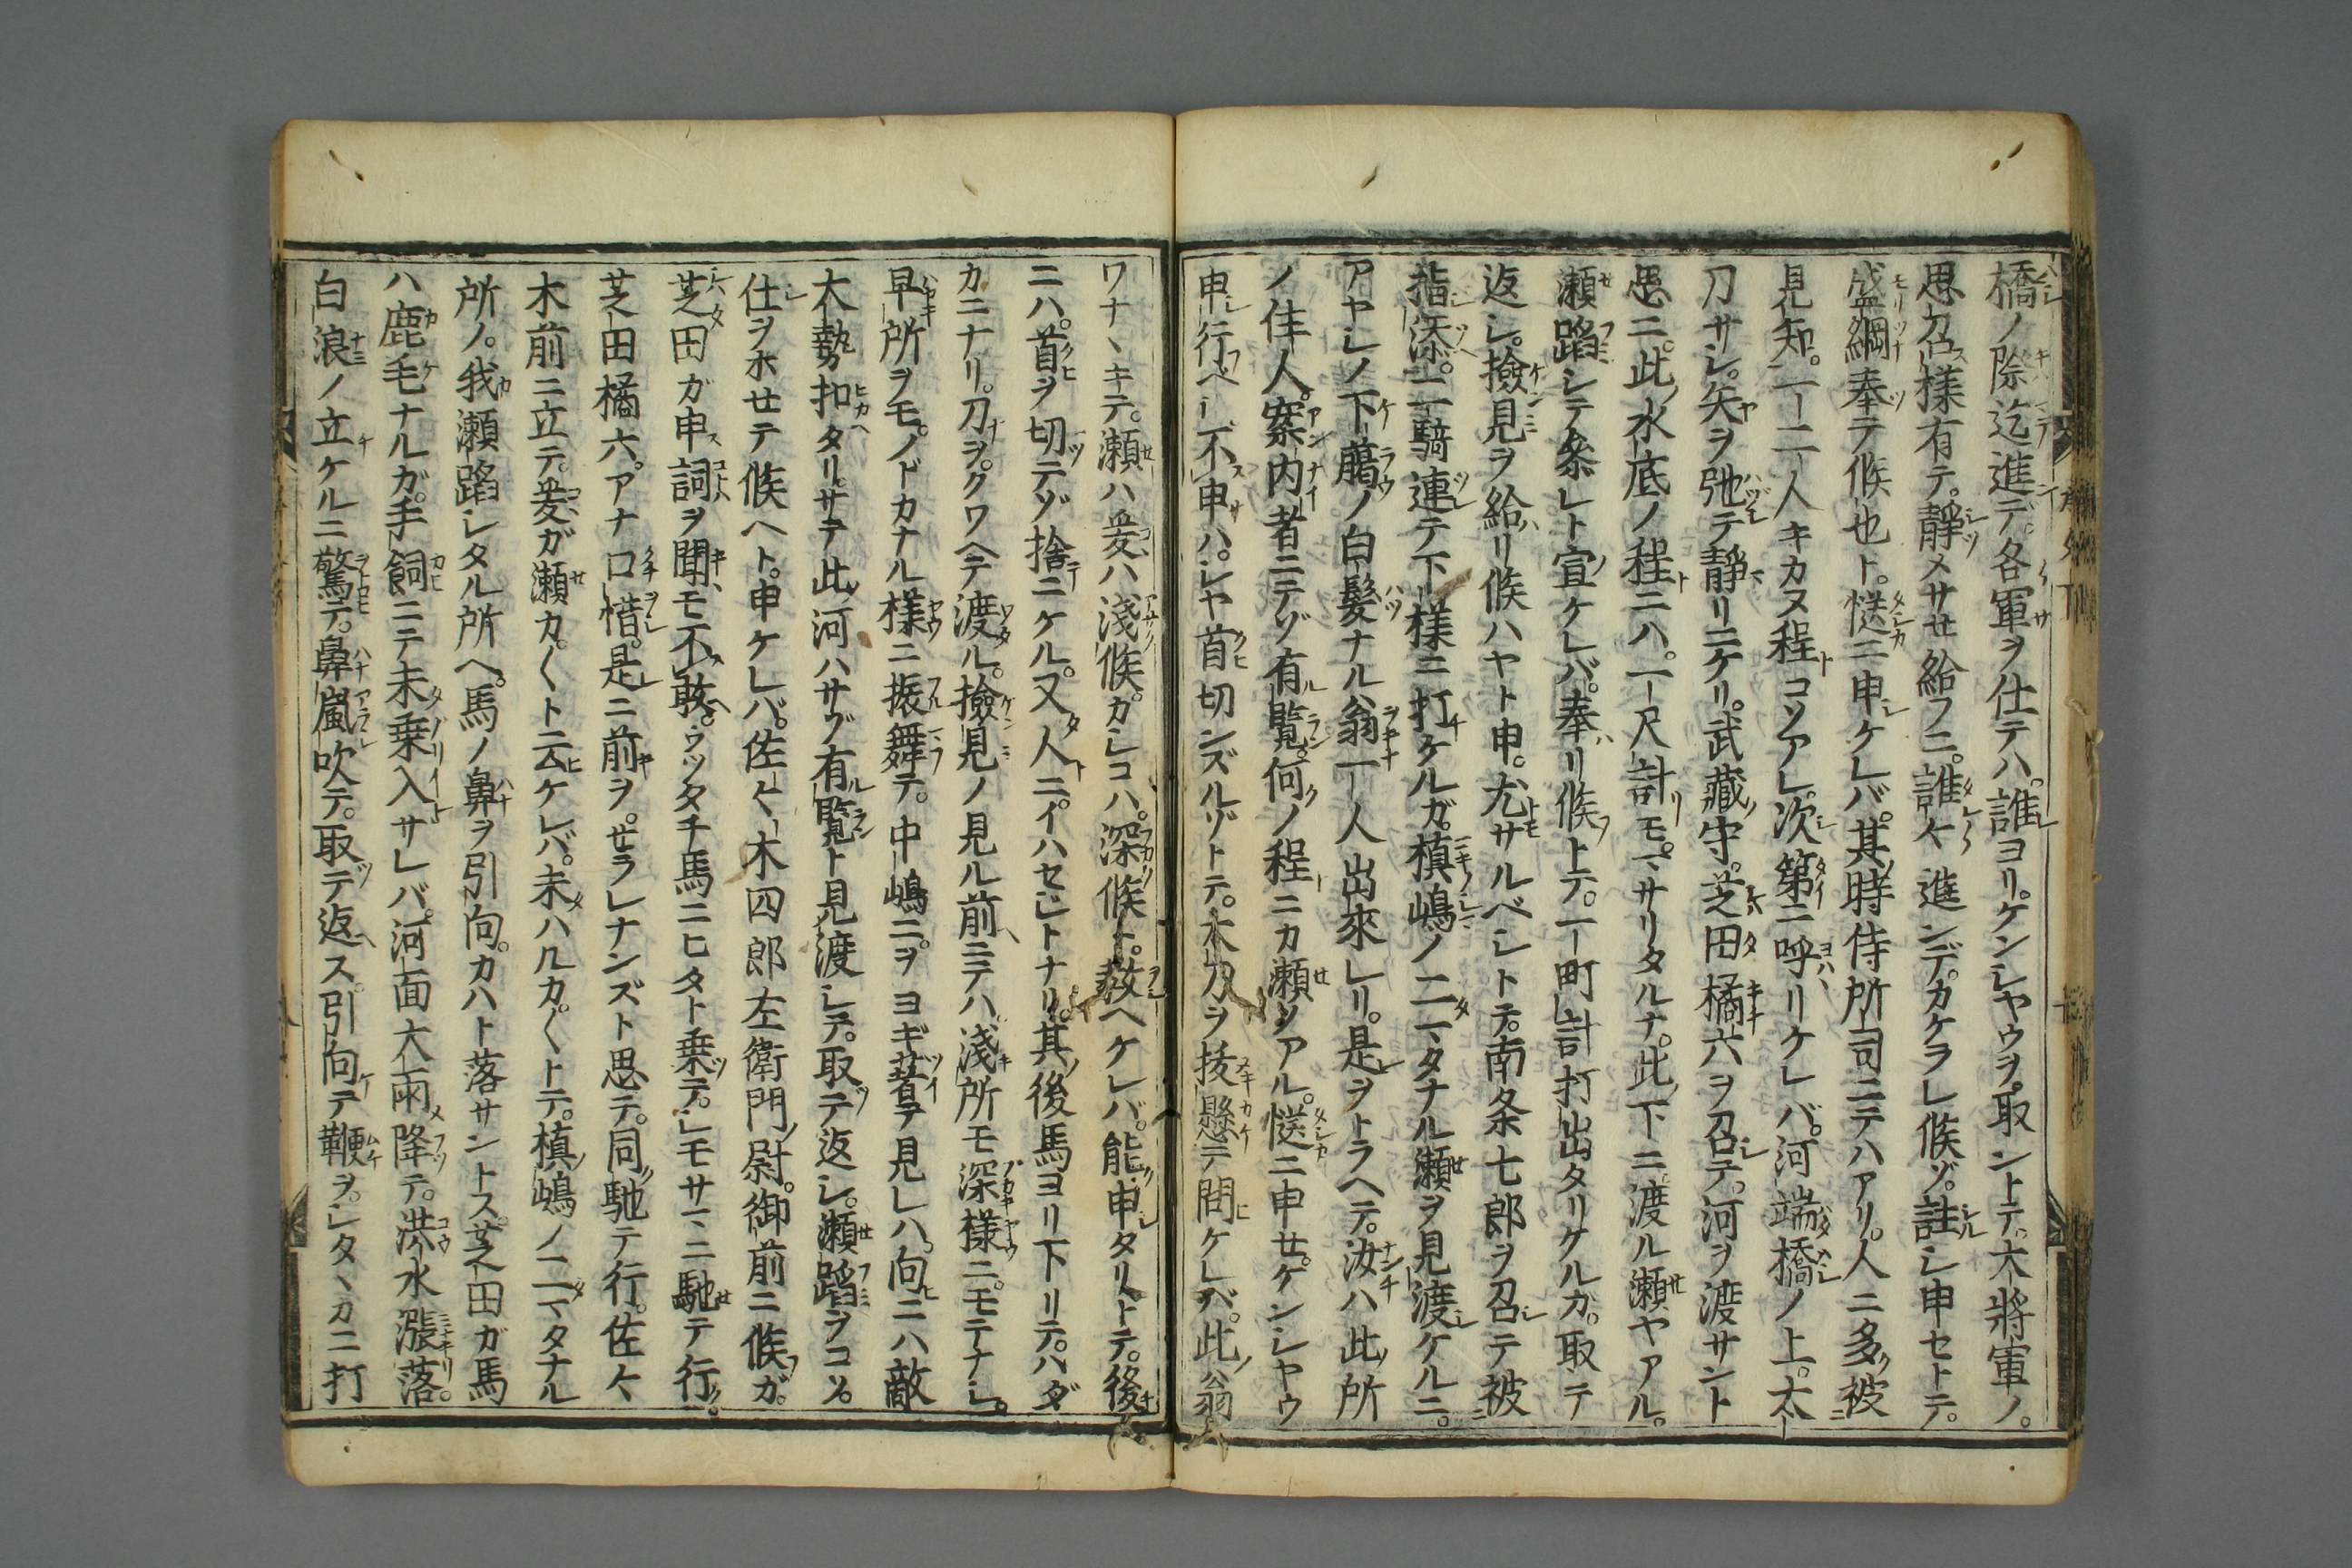 橋ノ際迄進デ各軍ヲ仕テハ。誰ヨリ。ケンシヤウヲ。取ントテ。大將軍ノ。
思召樣有テ。靜メサセ給フニ。誰々進ンデ。カケラレ候ゾ。註シ申セトテ。
盛綱奉テ候也ト。慥ニ申ケレバ。其時侍所司ニテハアリ。人ニ多被
見知。一二人キカヌ程コソアレ。次第ニ呼リケレバ。河端橋ノ上。太
刀サシ。矢ヲ弛テ靜リニケリ。武藏守。芝田橘六ヲ召テ。河ヲ渡サント
思ニ。此水底ノ程ニハ。一尺計モ。マサリタルナ。此下ニ。渡ル瀬ヤアル。
瀬蹈シテ參レト宣ケレバ。奉リ候トテ。一町計打出タリケルガ。取テ
返シ。撿見ヲ給リ候ハヤト申。尤サルベシトテ。南条七郎ヲ召テ被
指添。二騎連テ下樣ニ打ケルガ。槙嶋ノ二マタナル瀬ヲ見渡ケルニ。
アヤシノ下﨟ノ白髮ナル翁一人出來レリ。是ヲトラヘテ。汝ハ此所
ノ住人。案內者ニテゾ有覽。何ノ程ニカ瀬ノアル。慥ニ申セ。ケンシヤウ
申行ベシ。不申ハ。シヤ首切ンズルゾトテ。太刀ヲ抜懸テ問ケレバ。此翁
ワナヽキテ。瀬ハ爰ハ淺候。カシコハ。深候ト。敎ヘケレバ。能申タリトテ。後
ニハ。首ヲ切テゾ捨ニケル。又人ニイハセジトナリ。其後馬ヨリ下リテ。ハダ
カニナリ。刀ヲ。クワヘテ渡ル。撿見ノ見ル前ニテハ。淺所モ深樣ニ。モテナシ。
早所ヲモ。ノドカナル樣ニ振舞テ。中嶋ニ。ヲヨギ著テ見レハ。向ニハ敵
大勢扣タリ。サテ此河ハサゾ有覽ト見渡シテ。取テ返シ。瀬蹈ヲコソ。
仕ヲホセテ候ヘト。申ケレバ。佐々木四郎左衛門尉。御前ニ候ガ。
芝田ガ申詞ヲ聞モ不敢。ウツタチ馬ニヒタト乗テ。シモサマニ馳テ行。
芝田橘六。アナ口惜。是ニ前ヲ。セラレナンズト思テ。同馳テ行。佐々
木前ニ立テ。爰ガ瀬カ〱ト云ケレバ。未ハルカ〱トテ。槙嶋ノ二マタナル
所ノ。我瀬蹈シタル所ヘ。馬ノ鼻ヲ引向。カハト落サントス。芝田ガ馬
ハ鹿毛ナルガ。手飼ニテ未乗入サレバ。河面大雨降テ。洪水漲落。
白浪ノ立ケルニ驚テ。鼻嵐吹テ。取テ返ス。引向テ鞭ヲ。シタヽカニ打